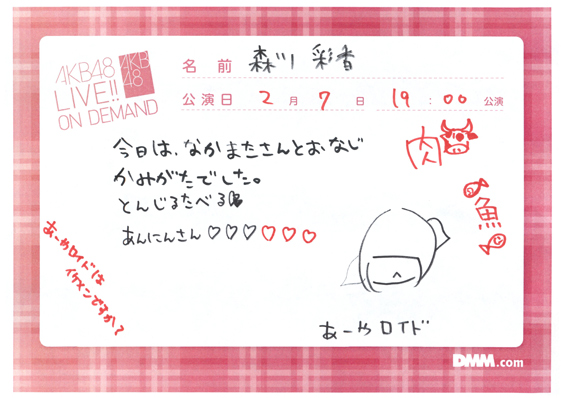 AKB48
LIVE!!
ON DEMAND
AKB
48
名前 森川 彩香
公演日 2月7日 19:00公演
今日は、なかまたさんとおなじ
かみがたでした。
とんじるたべる
あんにんさん♡♡♡♡♡♡
肉
魚
あーやロイドは
イケメンですか？
あーやロイド
DMM.com